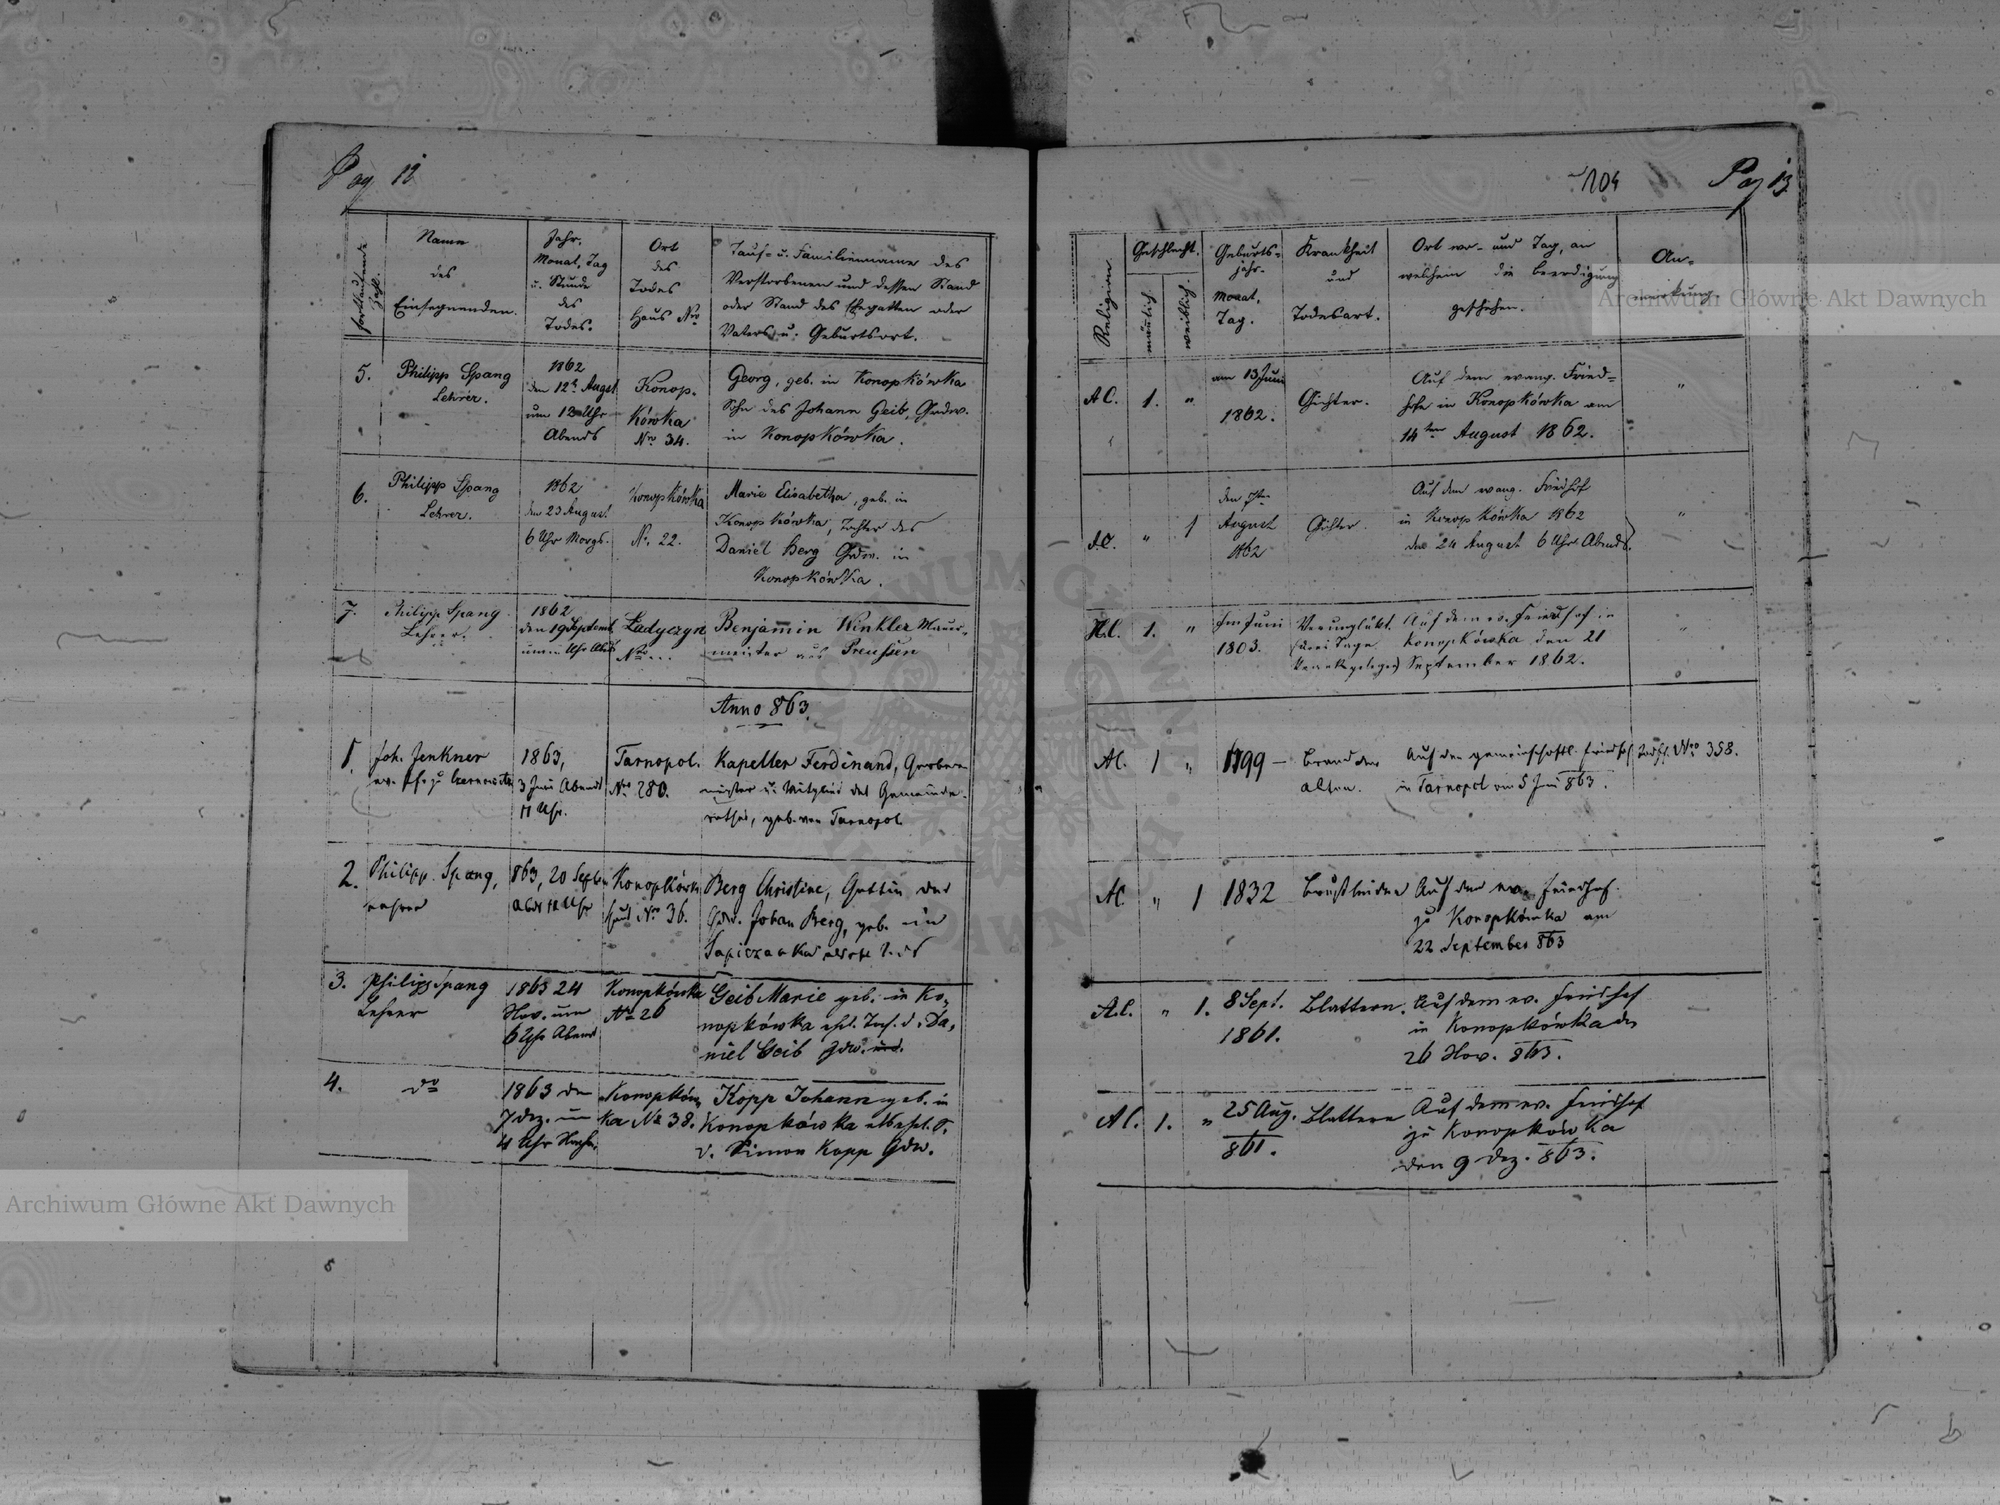 Pag 12
fortlaufende Zahl.
Name
des
Einsegnenden.
Jahr.
Monat, Tag
u. Stunde
des
Todes.
Ort
des
Todes
Haus Nro
Tauf- u. Familienname des
Verstorbenen und dessen Stand
oder Stand des Ehegatten oder
Vaters u. Geburtsort.
5.
Philipp Spang
Lehrer.
1862
den 12t August
um 12 Uhr
Abends
Konop-
kówka
Nro 34.
Georg, geb. in Konopkówka
Sohn des Johann Geib, Grdw.
in Konopkówka.
6.
Philipp Spang
Lehrer.
1862
den 23 August
6 Uhr Morgs.
Konopkówka
No. 22.
Marie Elisabetha, geb. in
Konopkówka, Tochter des
Daniel Berg Grdw. in
Konopkówka.
7.
Philipp Spang
Lehrer.
1862
den 19 Septemb.
um Uhr Abds
Ladyczyn
Nro ...
Benjamin Winkler Maur-
meister aus Preußen
Anno 863.
1.
Joh. Jenkner
ev. Pfr. zu
1863,
3 Juni Abends
11 Uhr.
Tarnopol
Nro 280.
Kapeller Ferdinand, Gerber-
meister u. Mitglied des Gemeinde-
rathes, geb. von Tarnopol
2.
Philipp Spang,
Lehrer
863, 20 Septbr
Abds 12 Uhr
Konopkówka
Haus Nro 36.
Berg Christine, Gattin des
Grdw. Johan Berg, geb. in
3.
Philipp Spang
Lehrer
1863 24
Nov. um
6 Uhr Abends
Konopkówka
No 26
Geib Marie geb. in Ko-
nopkówka ehl. Toch. d. Da-
niel Geib Gdw.
4.
do
1863 den
7 Dez. um
4 Uhr
Konopków-
ka No 38.
Kopp Johann geb. in
Konopkówka ehl. S.
d. Simon Kopp Gdw.
104
Pag 13
Religion.
Geschlecht.
mänlich.
weiblich.
Geburts-
jahr-
Monat,
Tag.
Krankheit
und
Todesart.
Ort wo- und Tag, an
welchem die Beerdigung
geschehen.
An-
merkung.
A C.
1.
"
am 13 Juni
1862.
Gichter.
Auf dem evang. Fried-
hofe in Konopkówka am
14ten August 1862.
"
A.C.
"
1
den 7ten
August
1862
Gichter.
Auf dem evang. Friedhof
in Konopkówka 1862
den 24 August 6 Uhr Abends.
"
A.C.
1.
"
Im Juni
1803.
Verunglükt.
(drei Tage
krank gelegen)
Auf dem ev. Friedhof in
Konopkówka den 21
September 1862.
"
AC.
1
"
1799 —
Brand der
Alten.
Auf den gemeinschaftl. Friedhof
in Tarnopol am 5 Juni 863.
Nro 358.
AC.
"
1
1832
Brustleiden
Auf den ev. Friedhof
zu Konopkówka am
22 September 863
A.C.
"
1.
8 Sept.
1861.
Blattern.
Auf dem ev. Friedhof
in Konopkówka den
26 Nov. 863.
AC.
1.
"
25 Aug.
861.
Blattern
Auf dem ev. Friedhof
zu Konopkówka
den 9 Dez. 863.
Archiwum Główne Akt Dawnych
Archiwum Główne Akt Dawnych